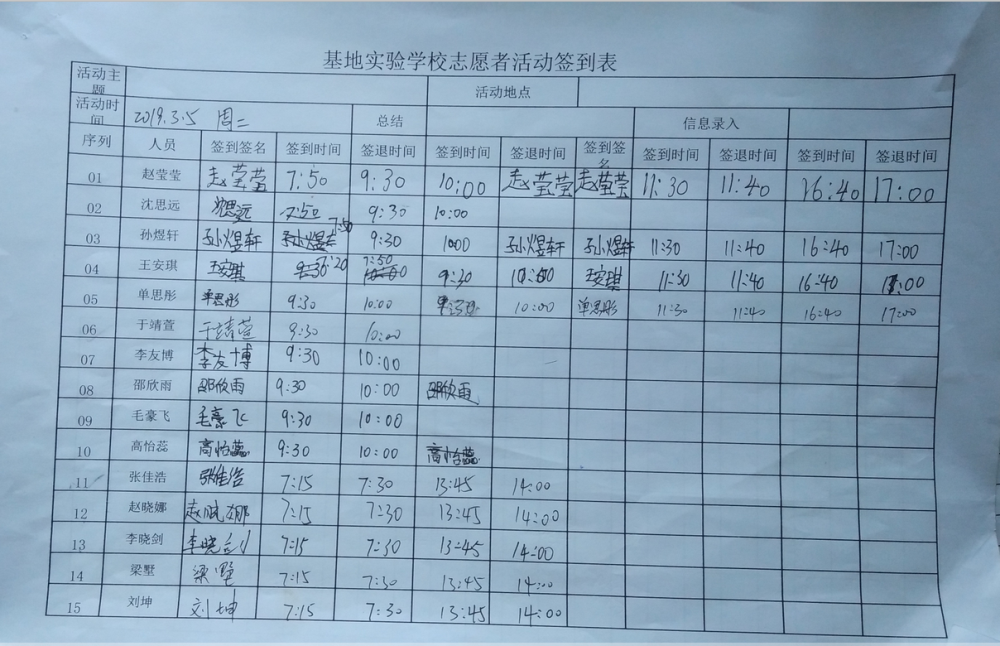 基地实验学校志愿者活动签到表
活动主题 活动地点
活动时间 2019.3.5 周二 总结 信息录入
序列 人员 签到签名 签到时间 签退时间 签到时间 签退时间 签到签名 签到时间 签退时间 签到时间 签退时间
01 赵莹莹 赵莹莹 7:50 9:30 10:00 赵莹莹 赵莹莹 11:30 11:40 16:40 17:00
02 沈思远 沈思远 7:50 9:30 10:00
03 孙煜轩 孙煜轩 7:50 9:30 1000 孙煜轩 孙煜轩 11:30 11:40 16:40 17:00
04 王安琪 王安琪 7:20 7:50 9:30 10:00 王安琪 11:30 11:40 16:40 17:00
05 单思彤 单思彤 9:30 10:00 10:00 单思彤 11:30 11:40 16:40 17:00
06 于靖萱 于靖萱 9:30 10:00
07 李友博 李友博 9:30 10:00
08 邵欣雨 邵欣雨 9:30 10:00 邵欣雨
09 毛豪飞 毛豪飞 9:30 10:00
10 高怡蕊 高怡蕊 9:30 10:00 高怡蕊
11 张佳浩 张佳浩 7:15 7:30 13:45 14:00
12 赵晓娜 赵晓娜 7:15 7:30 13:45 14:00
13 李晓剑 李晓剑 7:15 7:30 13:45 14:00
14 梁墅 梁墅 7:15 7:30 13:45 14:00
15 刘坤 刘坤 7:15 7:30 13:45 14:00